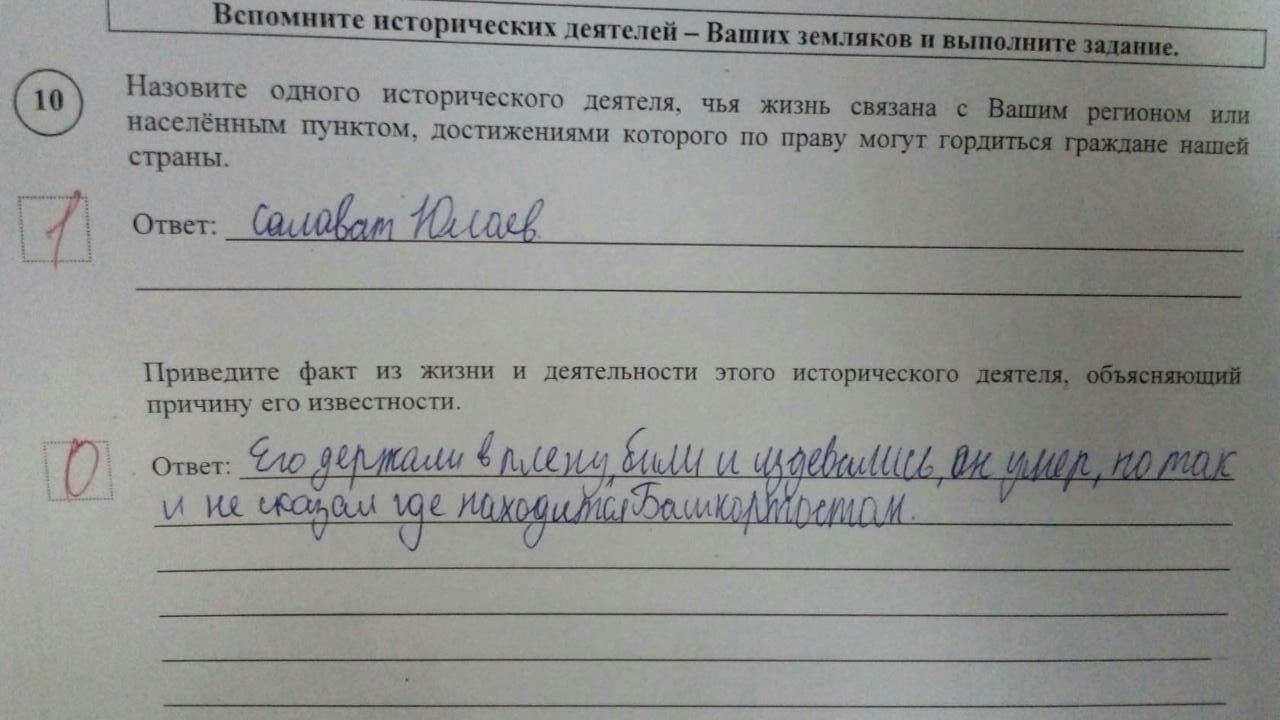 Вспомните исторических деятелей – Ваших земляков и выполните задание.
10
Назовите одного исторического деятеля, чья жизнь связана с Вашим регионом или
населённым пунктом, достижениями которого по праву могут гордиться граждане нашей
страны.
1
Ответ: Салават Юлаев.
Приведите факт из жизни и деятельности этого исторического деятеля, объясняющий
причину его известности.
0
Ответ: Его держали в плену, били и издевались, он умер, но так
и не сказал где находится Башкортостан.